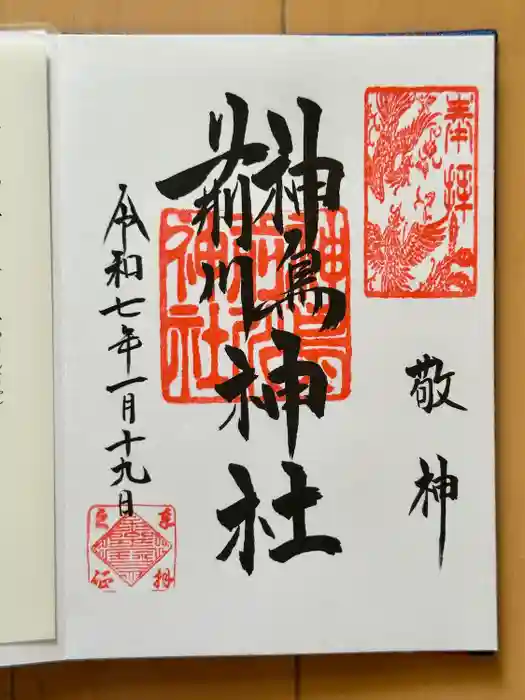 奉拝
敬神
神鳥
前川
神社
神鳥
前川
神社
令和七年一月十九日